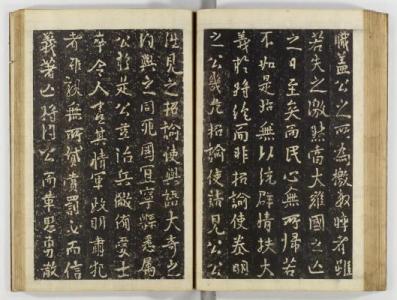 職蓋公之所為檄數時者雖
若失之激然當大難國之亡
之日至矣而民心無所歸若
不如是殆無以統群情扶大
義於將絕而非招諭使明
之公先招諭使諸見公公
性見之招諭使與語大奇之
約與之同死國且寧縣悉屬
公於是公治兵備士
卒令人言其情軍政明肅犯
者雖無所貸賞罰必而信
義著將公而思勇敢